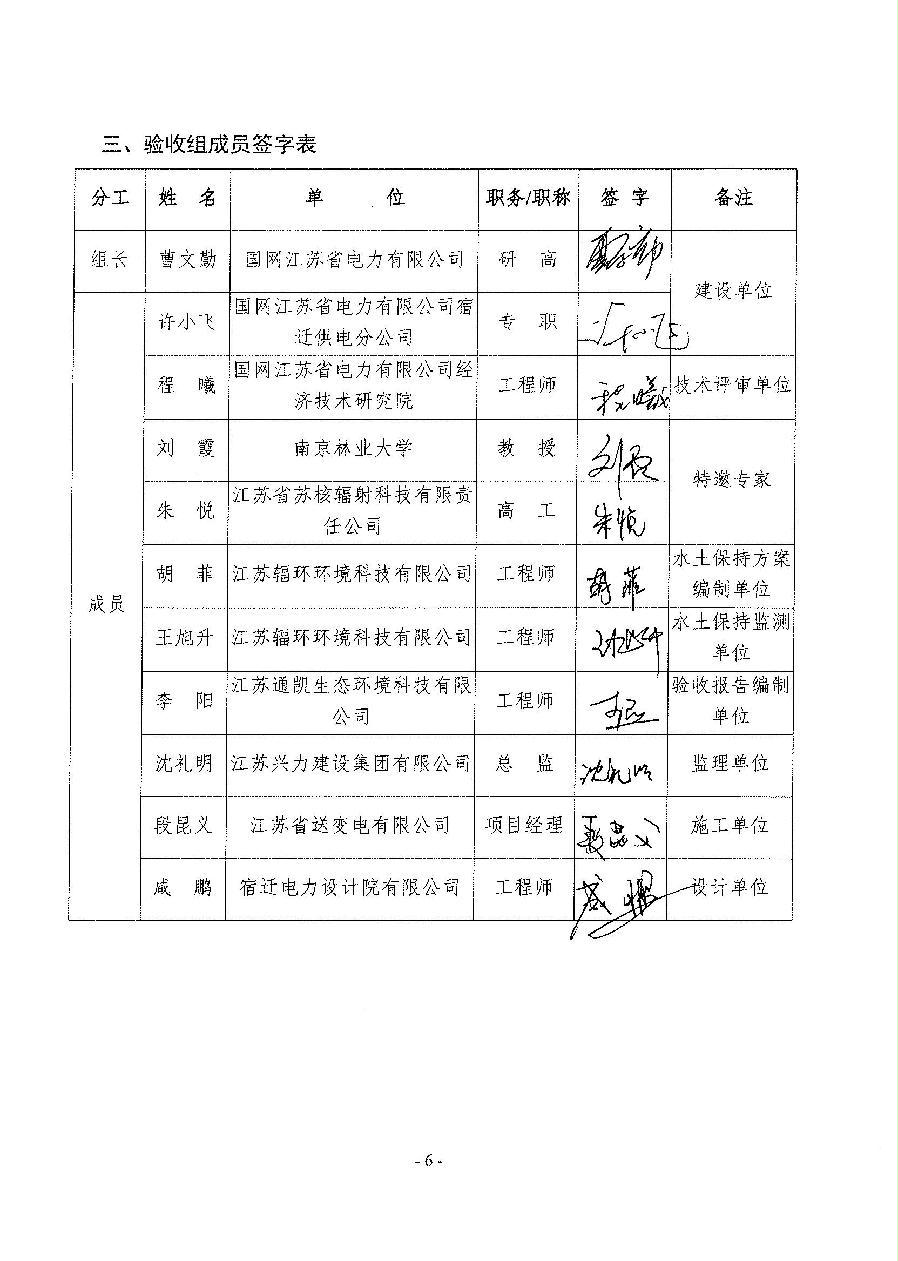 三、验收组成员签字表
分工 姓 名 单 位 职务/职称 签 字 备注
组长 曹文勤 国网江苏省电力有限公司 研 高
建设单位
许小飞 国网江苏省电力有限公司宿
迁供电分公司 专 职
程 曦 国网江苏省电力有限公司经
济技术研究院 工程师 程曦 技术评审单位
刘 霞 南京林业大学 教 授 刘霞
特邀专家
朱 悦 江苏省苏核辐射科技有限责
任公司 高 工 朱悦
成员
胡 菲 江苏辐环环境科技有限公司 工程师 胡菲 水土保持方案
编制单位
王旭升 江苏辐环环境科技有限公司 工程师 水土保持监测
单位
李 阳 江苏通凯生态环境科技有限
公司 工程师 验收报告编制
单位
沈礼明 江苏兴力建设集团有限公司 总 监 沈礼明 监理单位
段昆义 江苏省送变电有限公司 项目经理 段昆义 施工单位
咸 鹏 宿迁电力设计院有限公司 工程师 咸鹏 设计单位
- 6 -